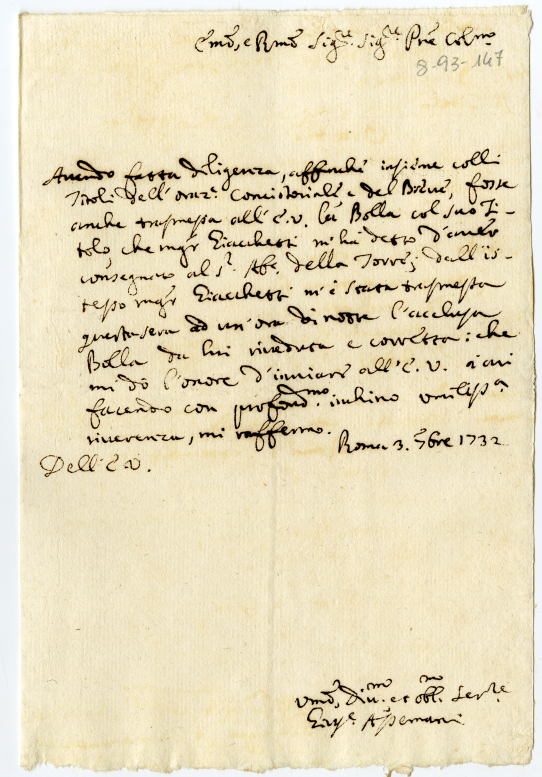 Emo, e Rmo Sigre. Sigre. Prne Colmo
8-93-147
Avendo fatta diligenza, affinché insieme colli
Titoli dell'oraz.e Concistoriale e del Breve, fosse
anche trasmessa all'E.V. la Bolla col suo Ti-
tolo che mgr Giacchetti m'hà detto d'aver
consegnato al s.r Ab.e della Torre; dall'is-
tesso mgr Giacchetti m'è stata trasmessa
questa sera ad un'ora di notte l'acclusa
Bolla da lui riveduta e corretta: che
mi dò l'onore d'inviare all'E.V. à cui
facendo con profondmo. inchino umilissa
riverenza, mi raffermo.
Roma 3. 7bre 1732
Dell'E.V.
Umo, Divmo. et oblmo Serre
Giuse. Assemani